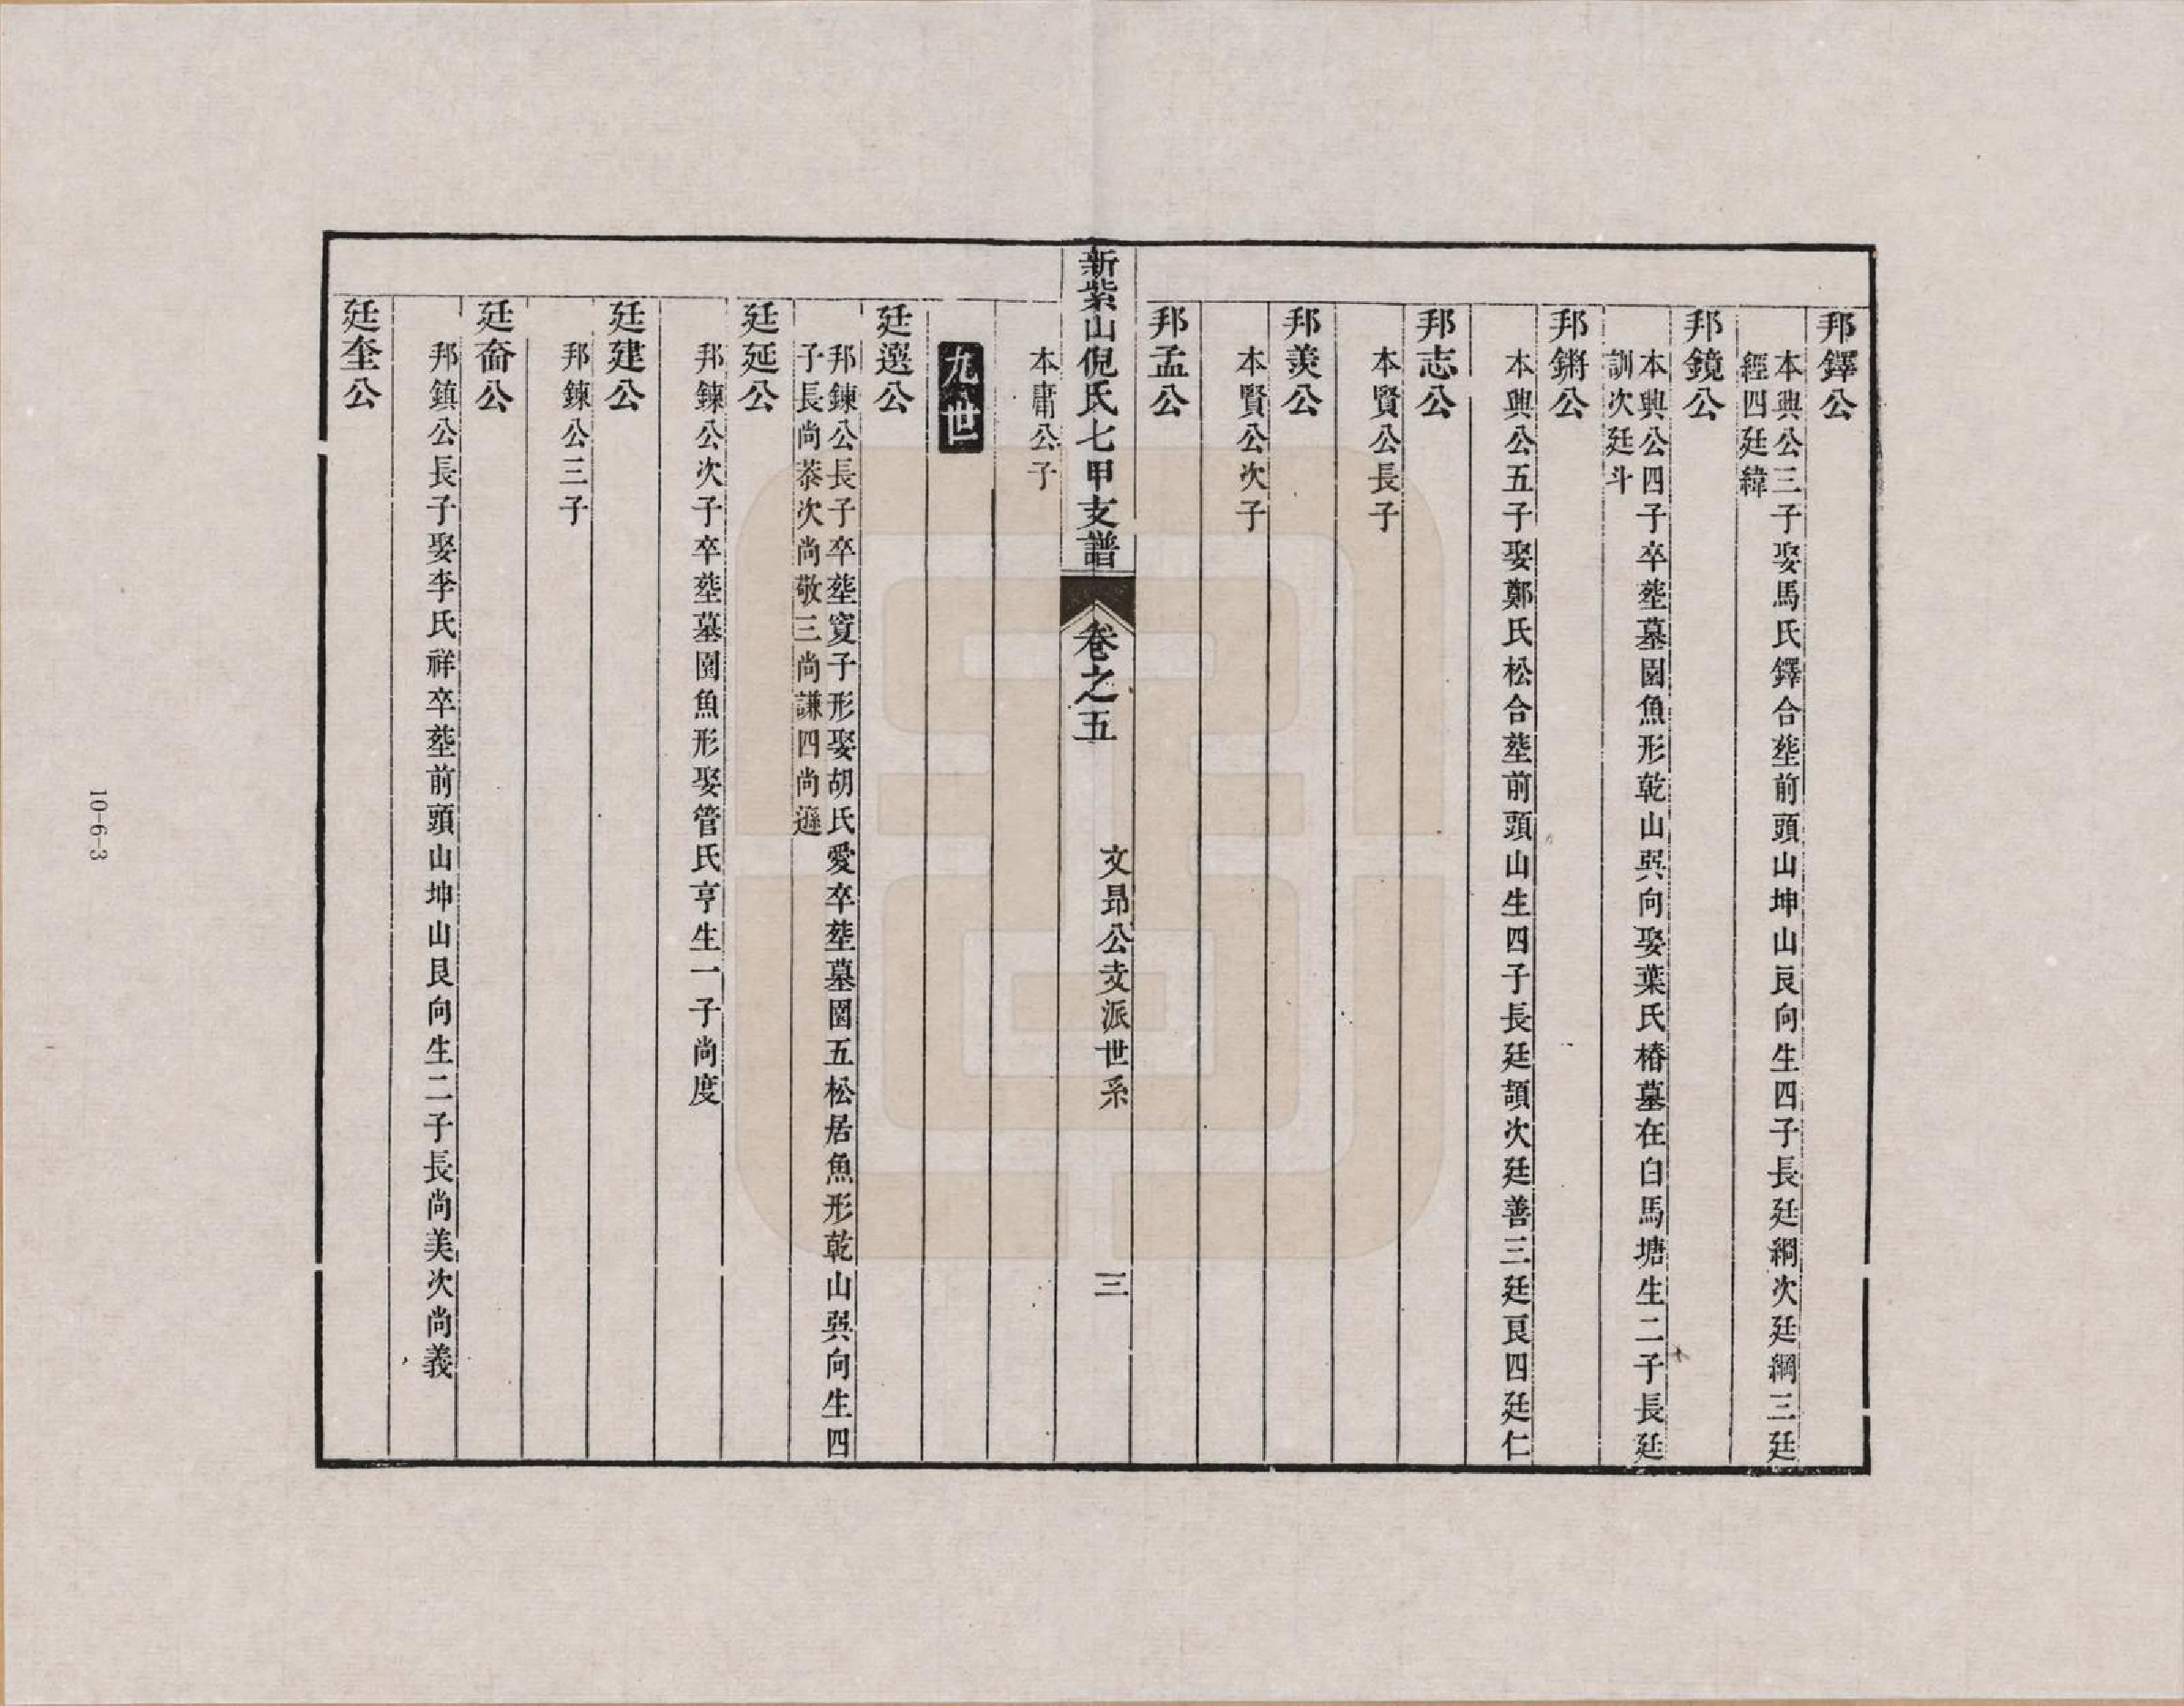 邦鐸公
本興公三子娶馬氏鐸合塟前頭山坤山艮向生四子長廷綱次廷綱三廷
經四廷緯
邦鏡公
本興公四子卒塟墓園魚形乾山巽向娶葉氏椿墓在白馬塘生二子長廷
訓次廷斗
邦鏘公
本興公五子娶鄭氏松合塟前頭山生四子長廷頡次廷善三廷良四廷仁
邦志公
本賢公長子
邦羨公
本賢公次子
邦孟公
本庸公子
新紫山倪氏七甲支譜
卷之五
文昴公支派世系
三
九世
廷選公
邦鍊公長子卒塟寶子形娶胡氏愛卒塟墓園五松居魚形乾山巽向生四
子長尚恭次尚敬三尚謙四尚遜
廷延公
邦鍊公次子卒塟墓園魚形娶管氏亨生一子尚度
廷建公
邦鍊公三子
廷奮公
邦鎮公長子娶李氏祥卒塟前頭山坤山艮向生二子長尚美次尚義
廷奎公
10-6-3